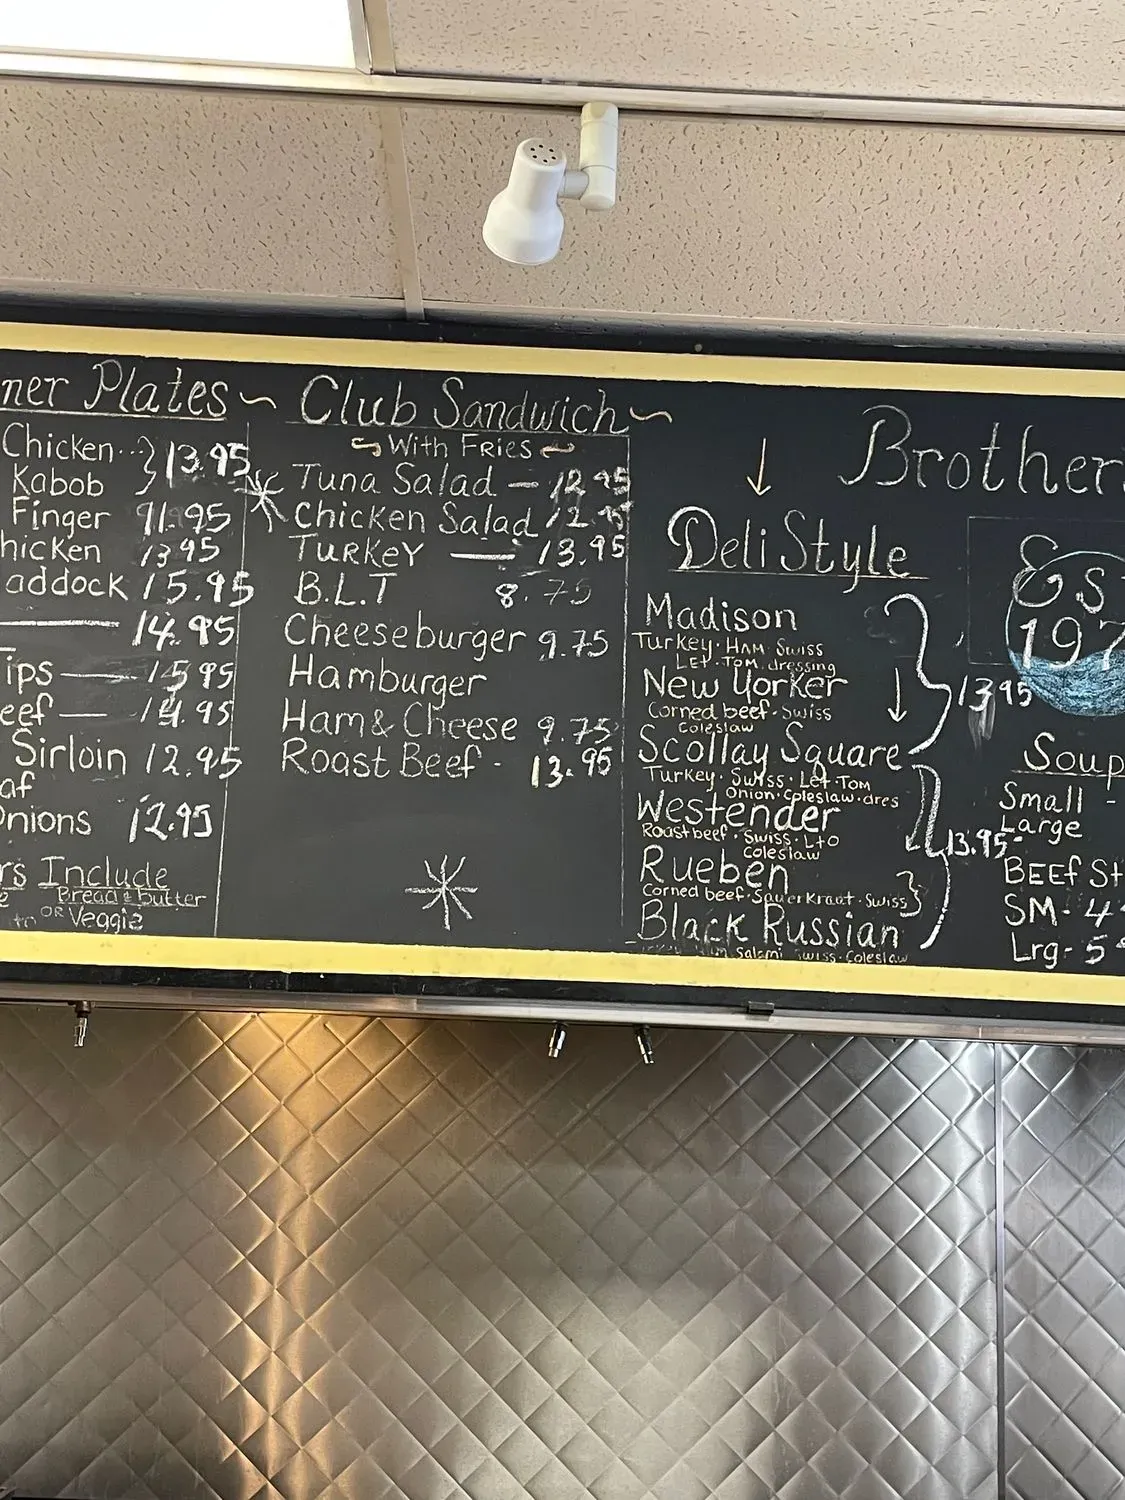 ner Plates ~
Chicken } 13.95
Kabob
Finger 11.95
hicken 13.95
addock 15.95
14.95
Tips 15.95
eef 14.95
Sirloin 12.95
af
Onions 12.95
rs Include
Bread & butter
OR Veggie
Club Sandwich ~
With Fries
Tuna Salad — 12.95
Chicken Salad 12.95
Turkey — 13.95
B.L.T 8.75
Cheeseburger 9.75
Hamburger
Ham & Cheese 9.75
Roast Beef - 13.95
Deli Style
Madison
Turkey · Ham Swiss
Let · Tom dressing
New Yorker
Corned beef · Swiss
Coleslaw
13.95
Scollay Square
Turkey · Swiss · Let · Tom
Onion · Coleslaw · dres
Westender
Roast beef · Swiss · L+O
Coleslaw
13.95
Rueben
Corned beef · Sauer Kraut · Swiss
Black Russian
Salami Swiss · Coleslaw
Brother
Est
197
Soup
Small -
Large
BEEF St
SM - 4
Lrg - 5